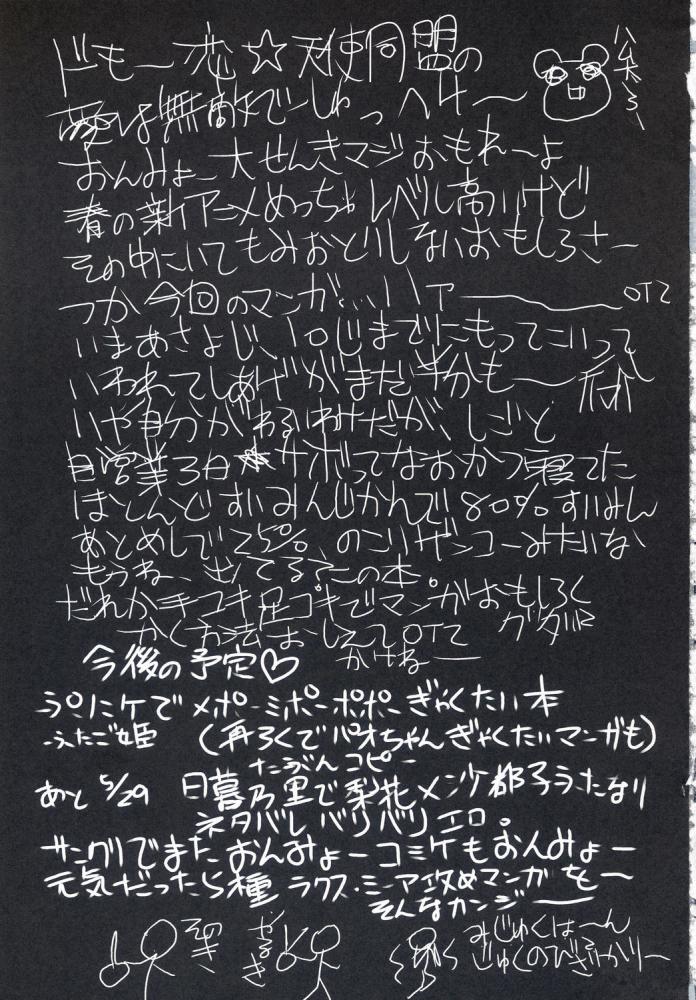 ドモー恋☆天使同盟の
愛は無敵でーじゅっ ヘイ〜
おんみょー大せんきマジおもれーよ
春の新アニメめっちゃレベル高いけど
その中にいてもみおとりしないおもしろさー
つか今回のマンガ…ハァ――― OTZ
いまあさ じ、10じまでにもってこいって
いわれてしあげがまだ半分も――
いや自分がわるいわけだが、しごと
自営業3日 サボってなおかつ寝てた
ほとんどすいみんじかんで80%すいみん
あとめしで25% のこりザンコーみたいな
もうね、出てる?この本。
だれか手コキ足コキでマンガおもしろく
かく方法おしえてOTZ
かけねー
今後の予定♡
ぷにケでメポーミポーポポーぎゃくたい本
ふたご姫 (再ろくでパオちゃんぎゃくたいマンガも)
たぶんコピー
あと 5/29 日暮乃里で梨花メンケ都子うたなり
ネタバレバリバリエロ。
サンクリでまたおんみょーコミケもおんみょー
元気だったら種 ラクス・ミーア攻めマンガを〜
そんなカンジ――
みじゅくはーん
じゅくのびざかりー